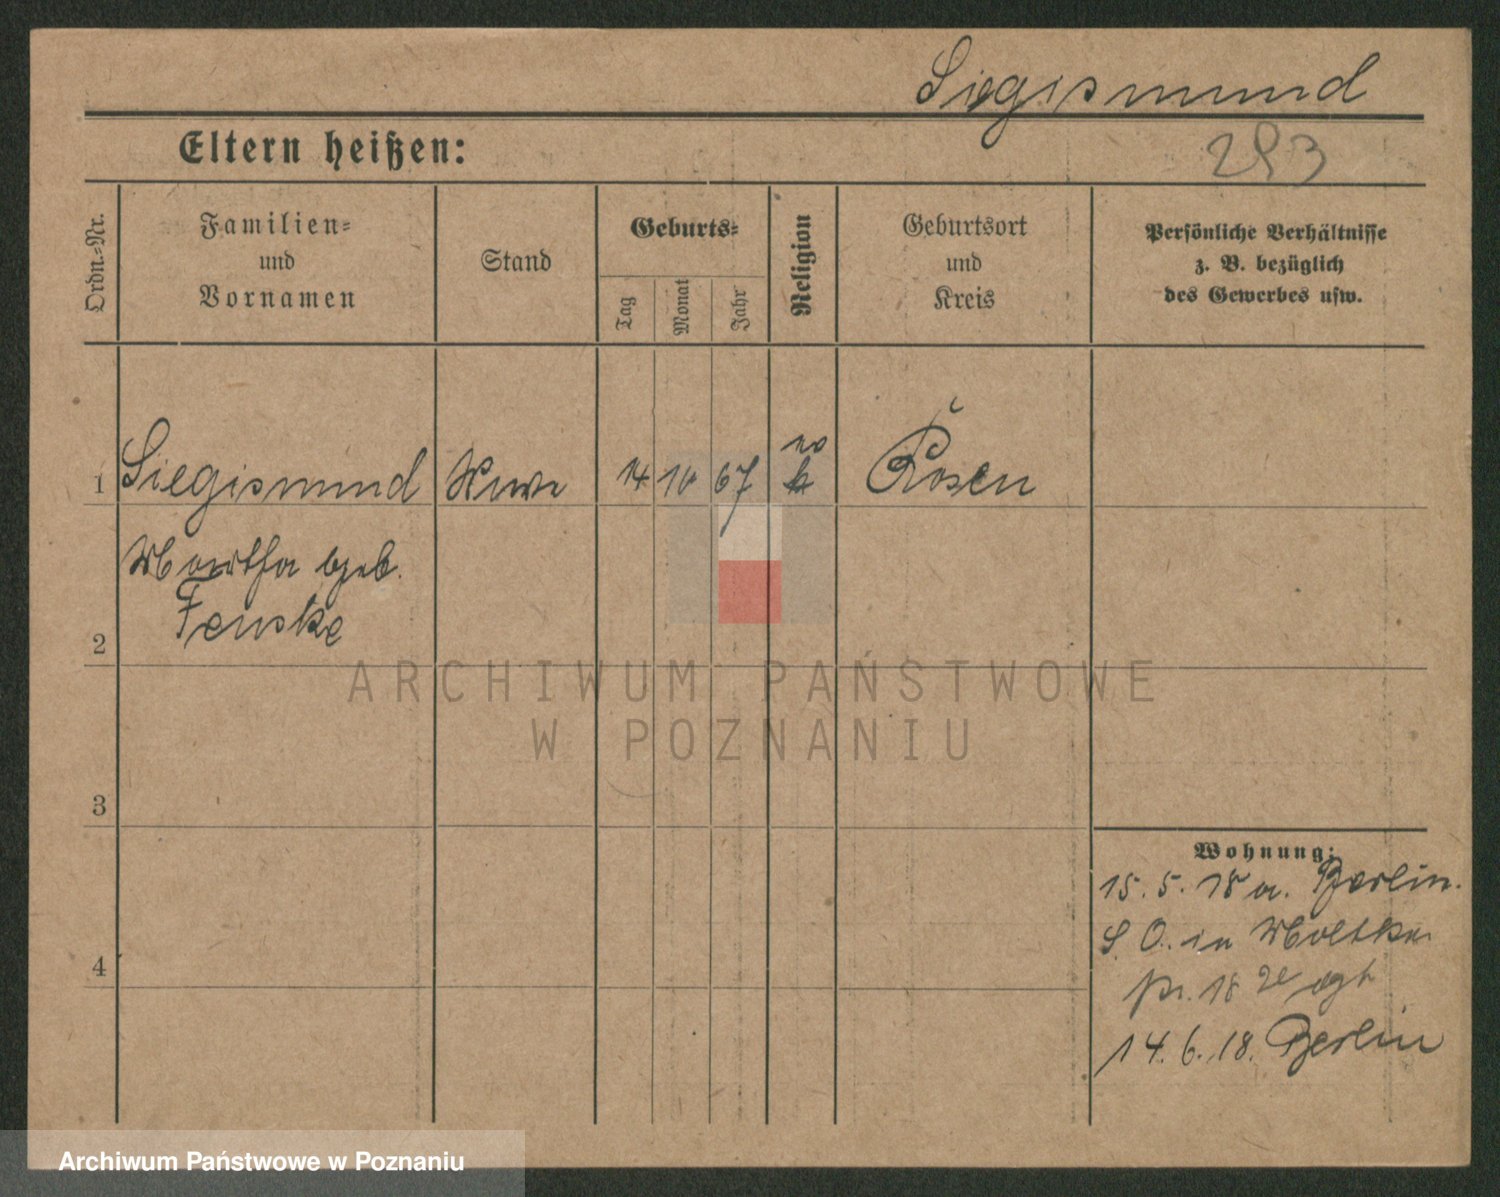 Siegismund
Eltern heißen:
293
Ordn.-Nr.
Familien-
und
Vornamen
Stand
Geburts-
Tag
Monat
Jahr
Religion
Geburtsort
und
Kreis
Persönliche Verhältnisse
z. B. bezüglich
des Gewerbes usw.
1 Siegismund Wwe 14 10 67 Posen
Martha geb.
Fenske
2
3
4
Wohnung:
15. 5. 18 a. Berlin.
S. O. in Moltke
14. 6. 18. Berlin
ARCHIWUM PAŃSTWOWE
W POZNANIU
Archiwum Państwowe w Poznaniu